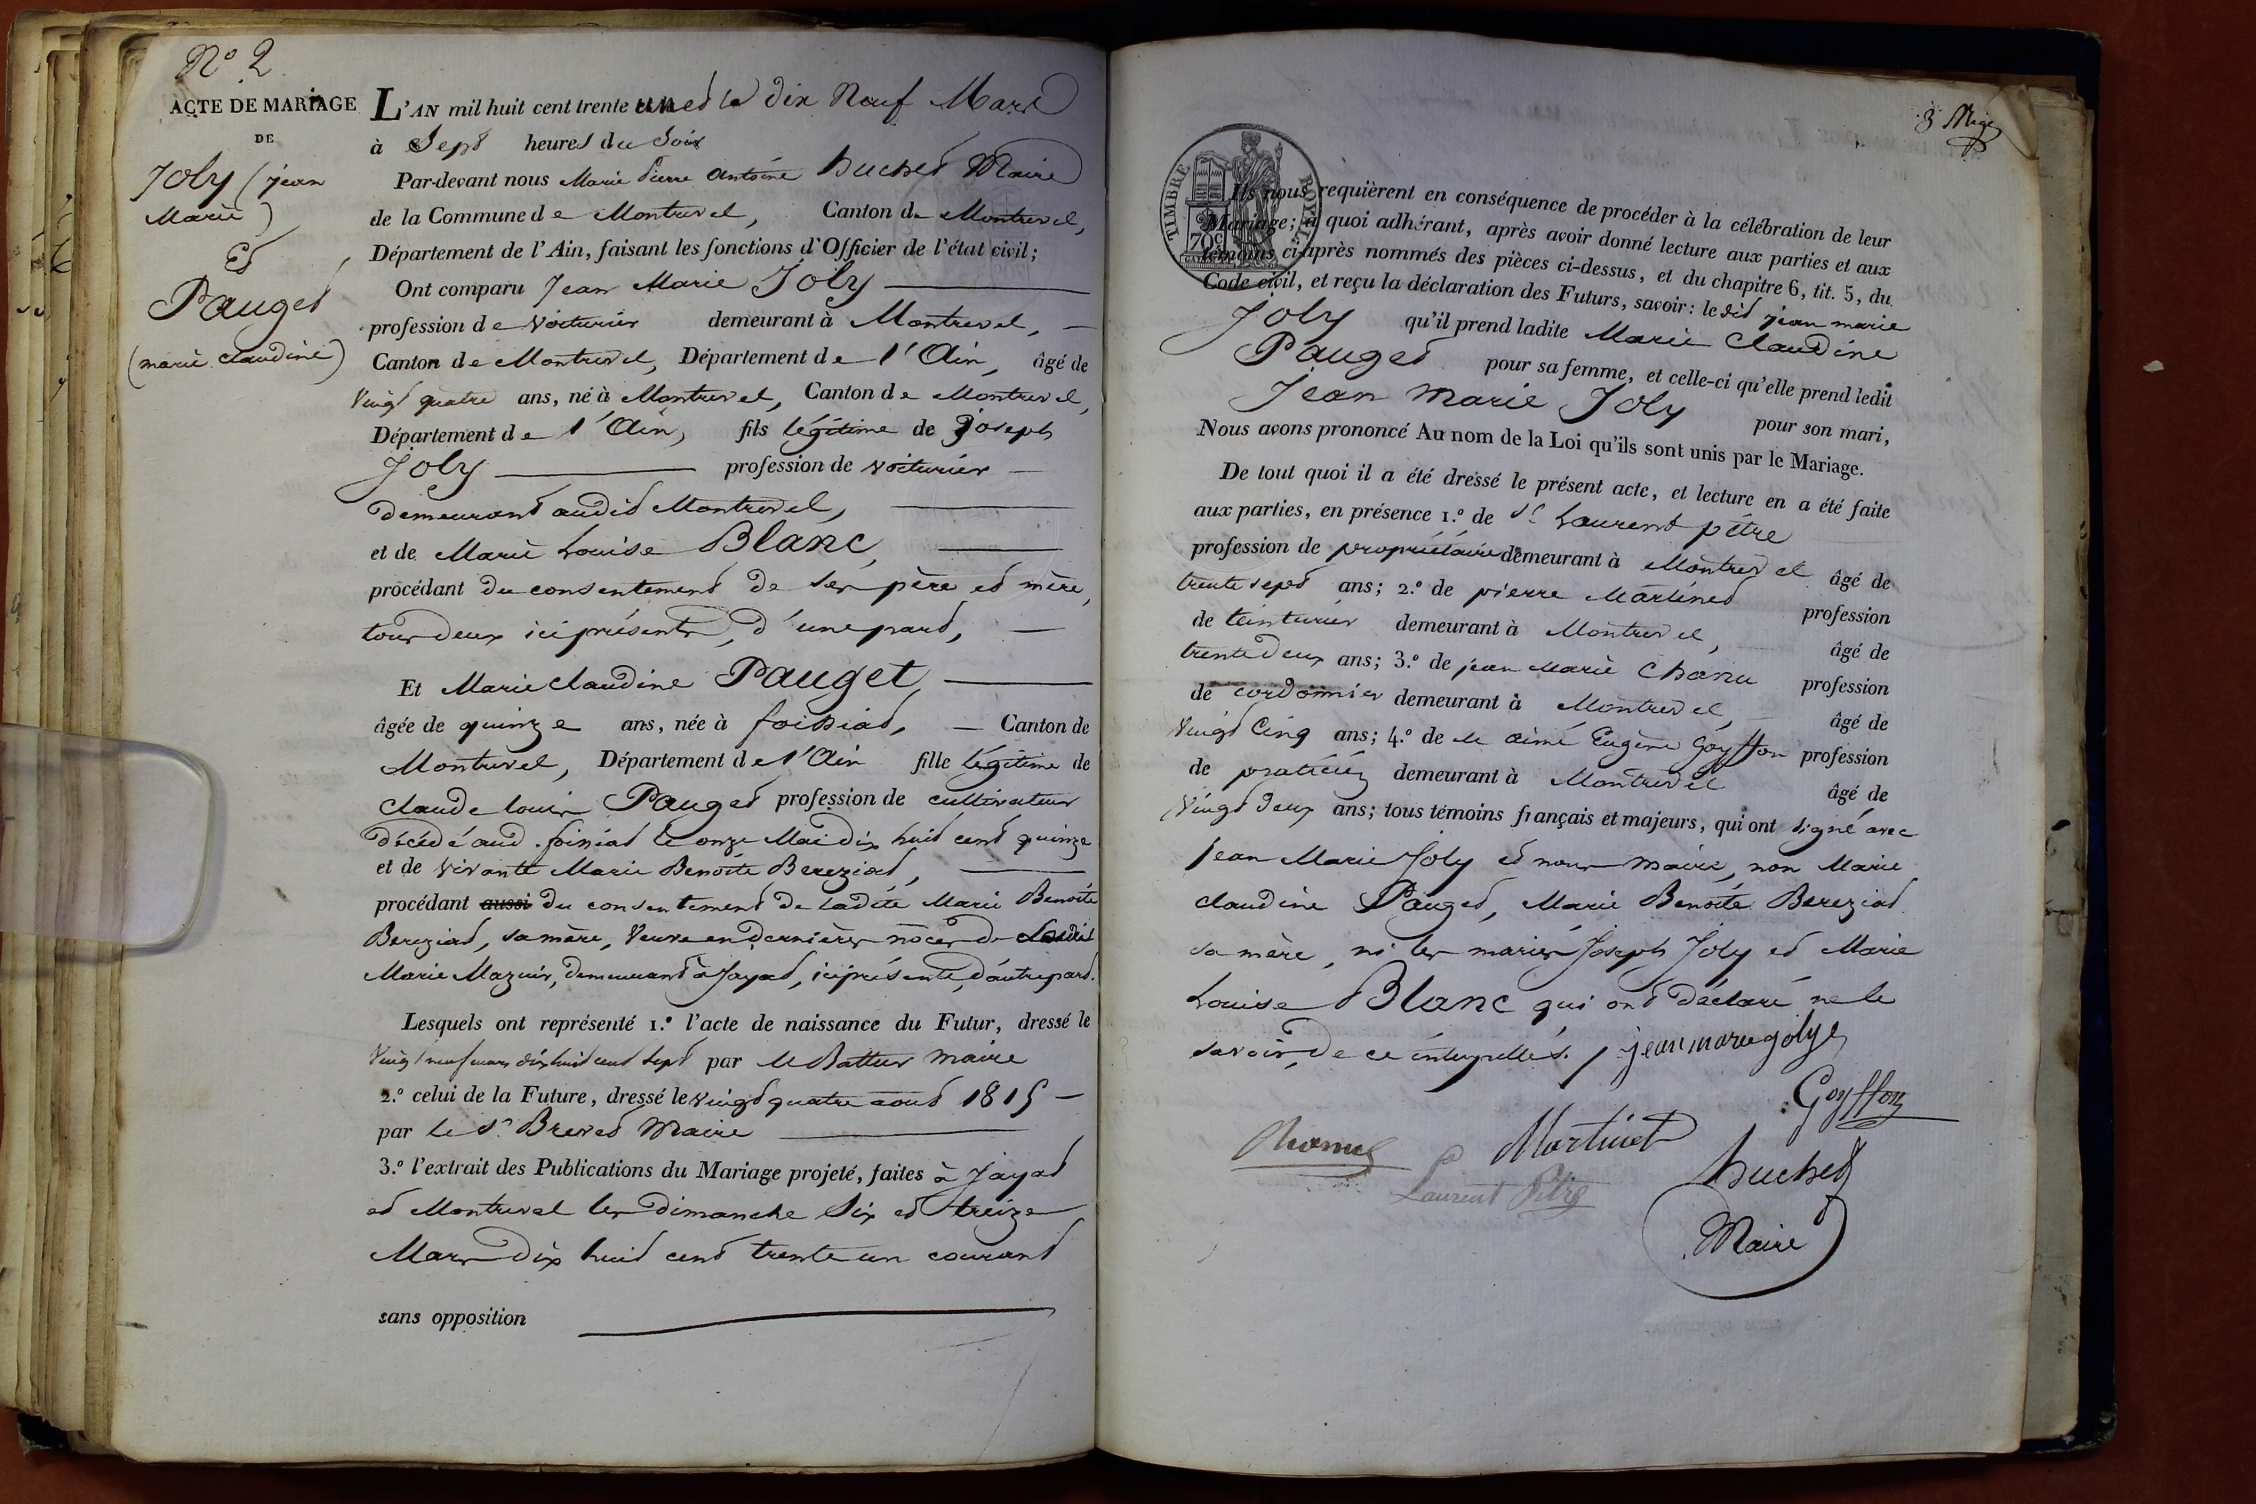 N.o 2
ACTE DE MARIAGE
DE
Joly (jean
Marie)
Et
Pauget
(marie claudine)
L'AN mil huit cent trente un et le dix Neuf Mars
à Sept heures du Soir
Par-devant nous Marie Pierre Antoine huchet Maire
de la Commune de Montrevel, Canton de Montrevel,
Département de l'Ain, faisant les fonctions d'Officier de l'état civil;
Ont comparu Jean Marie Joly
profession de Voiturier demeurant à Montrevel,
Canton de Montrevel, Département de l'Ain, âgé de
Vingt quatre ans, né à Montrevel, Canton de Montrevel,
Département de l'Ain, fils légitime de Joseph
Joly profession de voiturier
demeurant audit Montrevel,
et de Marie Louise Blanc,
procédant du consentement de ses père et mère,
tous deux ici présents, d'une part,
Et Marie claudine Pauget,
âgée de quinze ans, née à foissiat, Canton de
Montrevel, Département de l'Ain fille légitime de
Claude louis Pauget profession de cultivateur
décédé aud. foissiat le onze Mai dix huit cent quinze
et de vivante Marie Benoite Bereziat,
procédant aussi du consentement de ladite Marie Benoite
Bereziat, sa mère, Veuve en dernières nôces de
Marie Mazuir, demeurant à Jayat, ici présente, d'autre part.
Lesquels ont représenté 1.º l'acte de naissance du Futur, dressé le
Vingt neuf mars dix huit cent sept par M Battur maire
2.º celui de la Future, dressé le vingt quatre aout 1815
par le Sr. Brevet Maire
3.º l'extrait des Publications du Mariage projeté, faites à Jayat
et Montrevel les dimanche Six et treize
Mars dix huit cent trente un courant
sans opposition
3
TIMBRE ROYAL
70c
Ils nous requièrent en conséquence de procéder à la célébration de leur
Mariage; à quoi adhérant, après avoir donné lecture aux parties et aux
témoins ci-après nommés des pièces ci-dessus, et du chapitre 6, tit. 5, du
Code civil, et reçu la déclaration des Futurs, savoir: le dit jean marie
Joly qu'il prend ladite Marie Claudine
Pauget pour sa femme, et celle-ci qu'elle prend ledit
Jean Marie Joly pour son mari,
Nous avons prononcé Au nom de la Loi qu'ils sont unis par le Mariage.
De tout quoi il a été dressé le présent acte, et lecture en a été faite
aux parties, en présence 1.º de Sr Laurent pètre
profession de propriétaire demeurant à Montrevel âgé de
trente sept ans; 2.º de pierre Martinet profession
de teinturier demeurant à Montrevel, âgé de
trente deux ans; 3.º de jean Marie Chanu profession
de cordonnier demeurant à Montrevel, âgé de
Vingt Cinq ans; 4.º de M aimé Eugène Goyffon profession
de praticien demeurant à Montrevel âgé de
Vingt deux ans; tous témoins français et majeurs, qui ont signé avec
jean Marie Joly et nous maire, non Marie
claudine Pauget, Marie Benoite Bereziat
sa mère, ni les mariés Joseph Joly et Marie
Louise Blanc qui ont déclaré ne le
savoir, de ce interpellés. jean marie golye
Goyffon
Martinet
Laurent Pètre
huchet
Maire